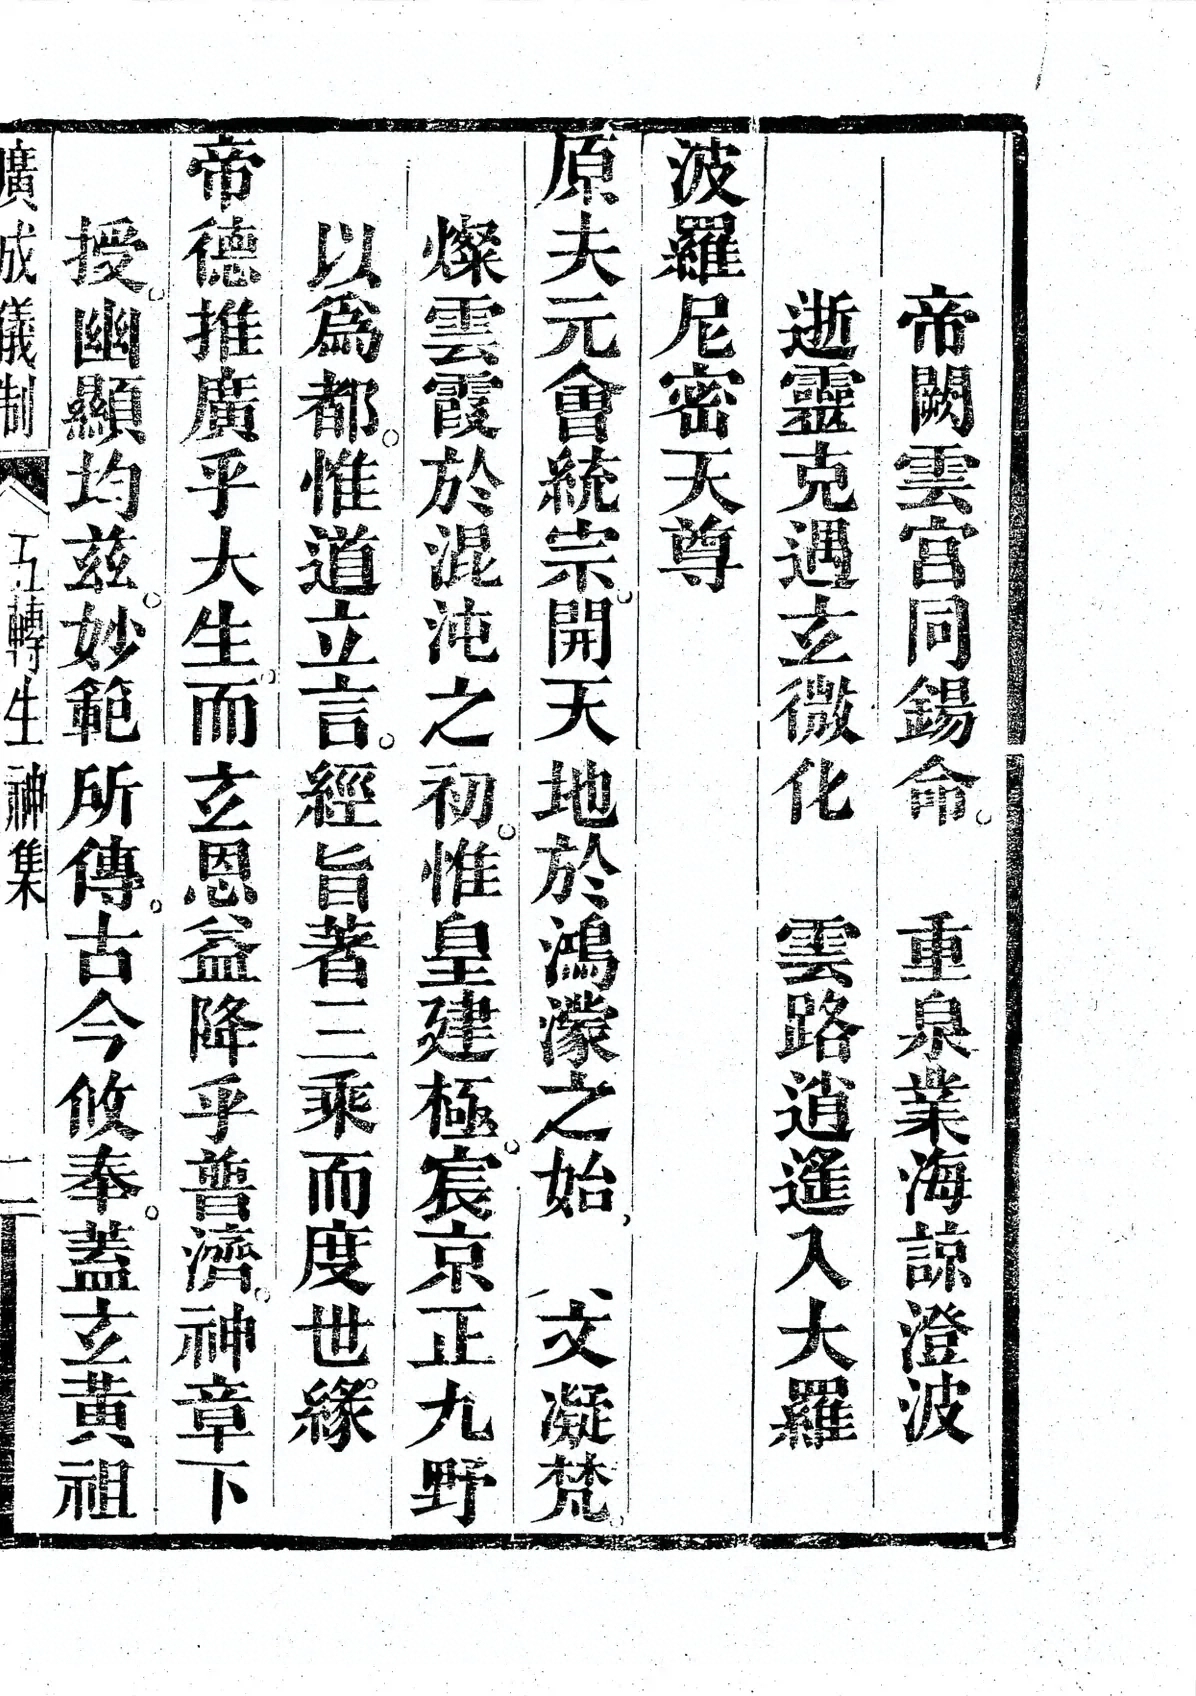 帝闕雲宮同錫命。　重泉業海諒澄波
逝靈克遇玄微化　雲路逍遙入大羅
波羅尼密天尊
原夫元會統宗。開天地於鴻濛之始　文凝梵
燦雲霞於混沌之初。惟皇建極。宸京正九野
以爲都。惟道立言。經旨著三乘而度世緣。
帝德推廣乎大生。而玄恩益降乎普濟。神章下
授。幽顯均兹。妙範所傳。古今攸奉。蓋玄黃祖
廣成儀制　五轉生神集　二